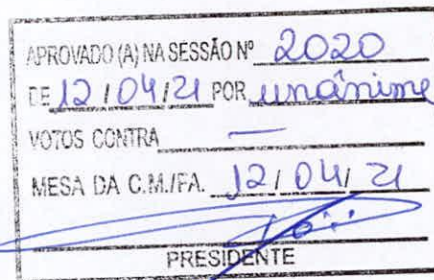 APROVADO (A) NA SESSÃO Nº 2020
DE 12/04/21 POR unânime
VOTOS CONTRA —
MESA DA C.M./FA. 12/04/21
PRESIDENTE